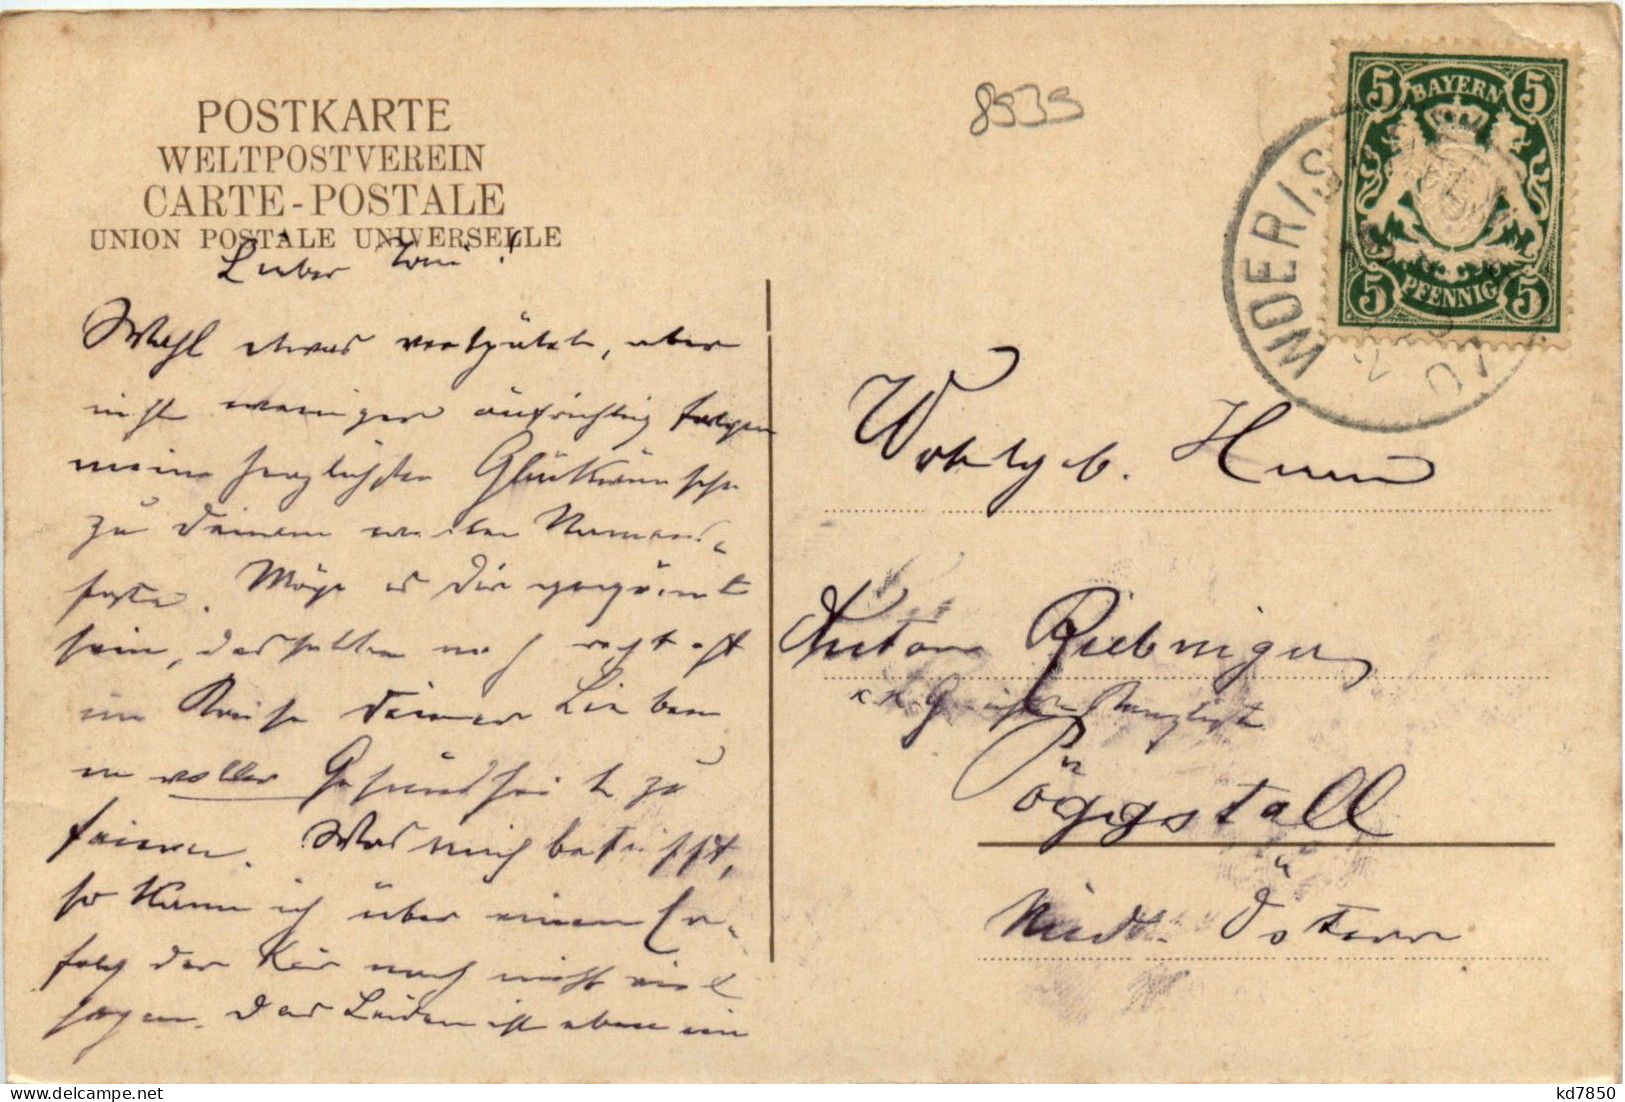 POSTKARTE
WELTPOSTVEREIN
CARTE-POSTALE
UNION POSTALE UNIVERSELLE
8939
5 BAYERN 5
5 PFENNIG 5
WOERIS
07
Lieber Toni!
Wohl etwas verspätet, aber
nicht weniger aufrichtig folgen
meine herzlichsten Glückwünsche
zu Deinem werten Namens-
feste. Möge es Dir gegönnt
sein, dasselbe noch recht oft
im Kreise Deiner Lieben
in voller Gesundheit zu
feiern. Was mich betrifft,
so kann ich über einen Er-
folg der Kur noch nicht viel
sagen. Das Leiden ist eben ein
Wohlgeb. Herrn
Anton Riebniger
k. k. Gerichts Kanzlist
Pöggstall
Nied. Österr
kd7850